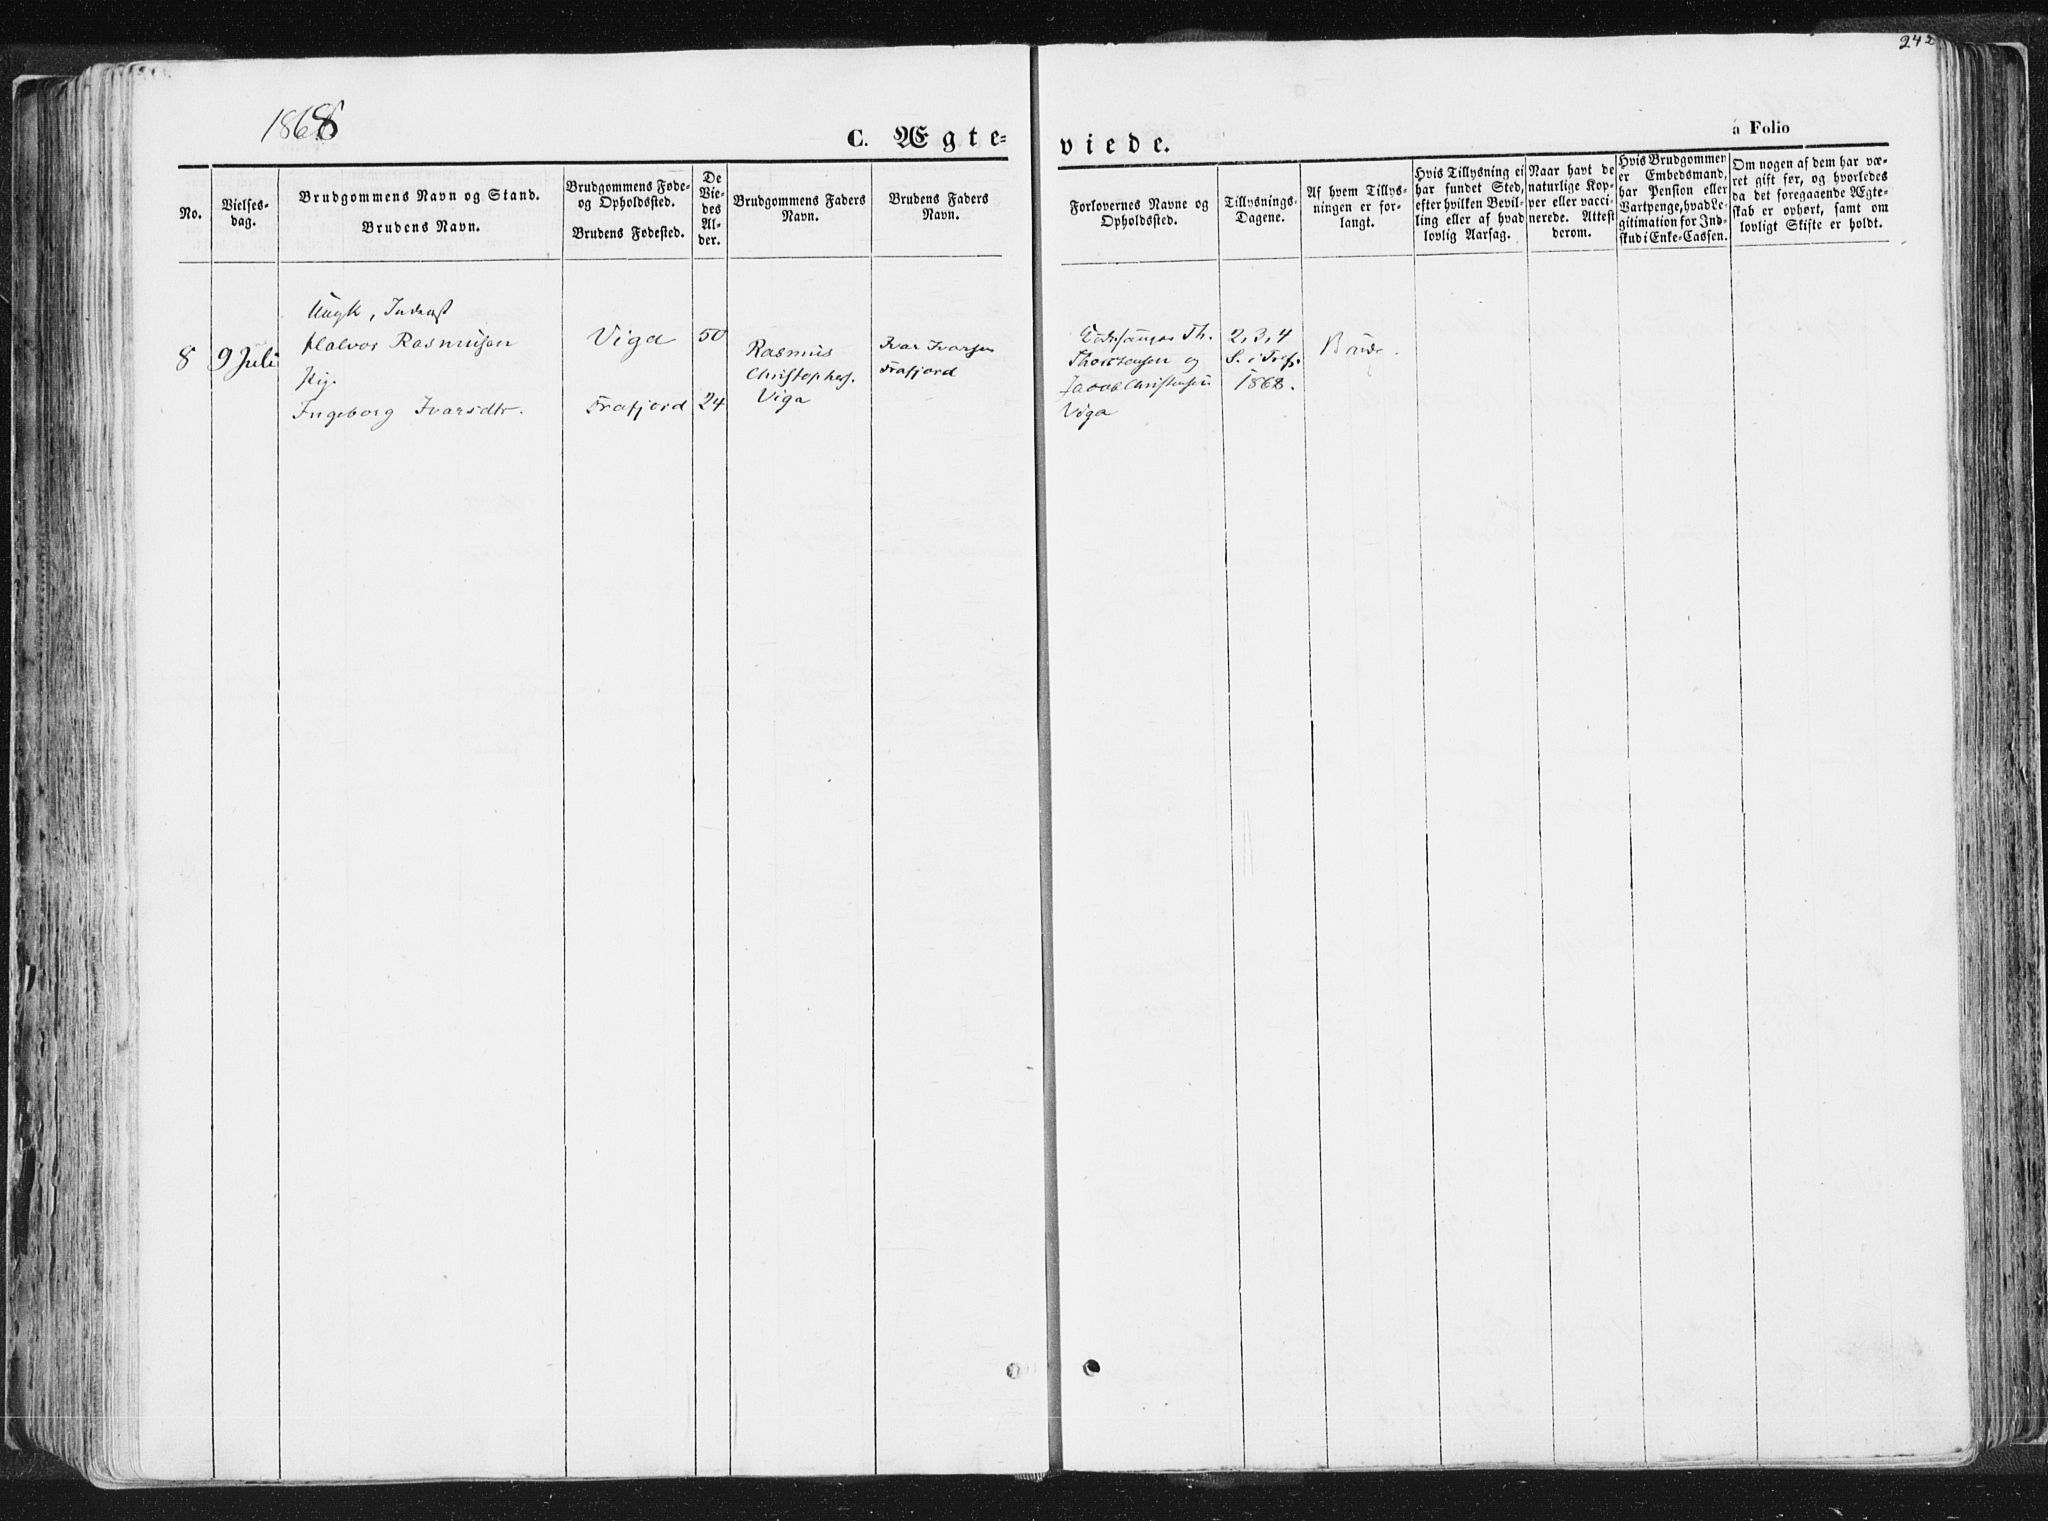 242
1868
C. Ægte-
viede.
á Folio
No.
Vielses-
dag.
Brudgommens Navn og Stand.
Brudens Navn.
Brudgommens Føde-
og Opholdssted.
Brudens Fødested.
De
Vie-
des
Al-
der.
Brudgommens Faders
Navn.
Brudens Faders
Navn.
Forlovernes Navne og
Opholdssted.
Tillysnings-
Dagene.
Af hvem Tillys-
ningen er for-
langt.
Hvis Tillysning ei
har fundet Sted,
efter hvilken Bevil-
ling eller af hvad
lovlig Aarsag.
Naar havt de
naturlige Kop-
per eller vacci-
nerede. Attest
derom.
Hvis Brudgommen
er Embedsmand,
har Pension eller
Vartpenge, hvad Le-
gitimation for Ind-
skud i Enke-Cassen.
Om nogen af dem har væ-
ret gift før, og hvorledes
da det foregaaende Ægte-
skab er ophørt, samt om
lovligt Skifte er holdt.
8
9 Juli
Ungk, Inderst
Halvor Rasmusen
Pige
Ingeborg Ivarsdtr.
Viga
Frafjord
50
24
Rasmus
Christophers.
Viga
Ivar Ivarsen
Frafjord
Th.
Thorstensen og
Jacob Christensen
Viga
2, 3, 4
S. i Tref.
1868.